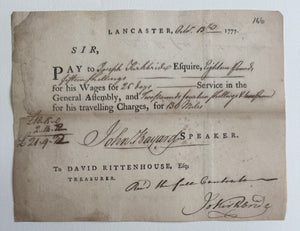 166
LANCASTER, Octr. 13th 1777.
SIR,
PAY to Joseph Kirkbride Esquire, Eighteen Pounds
fifteen Shillings
for his Wages for 25 days Service in the
General Assembly, and Two pounds fourteen Shillings &
for his travelling Charges, for 130 Miles
John Bayard SPEAKER.
To DAVID RITTENHOUSE, Esq;
TREASURER.
Recd the full Contents
Jos Kirkbride